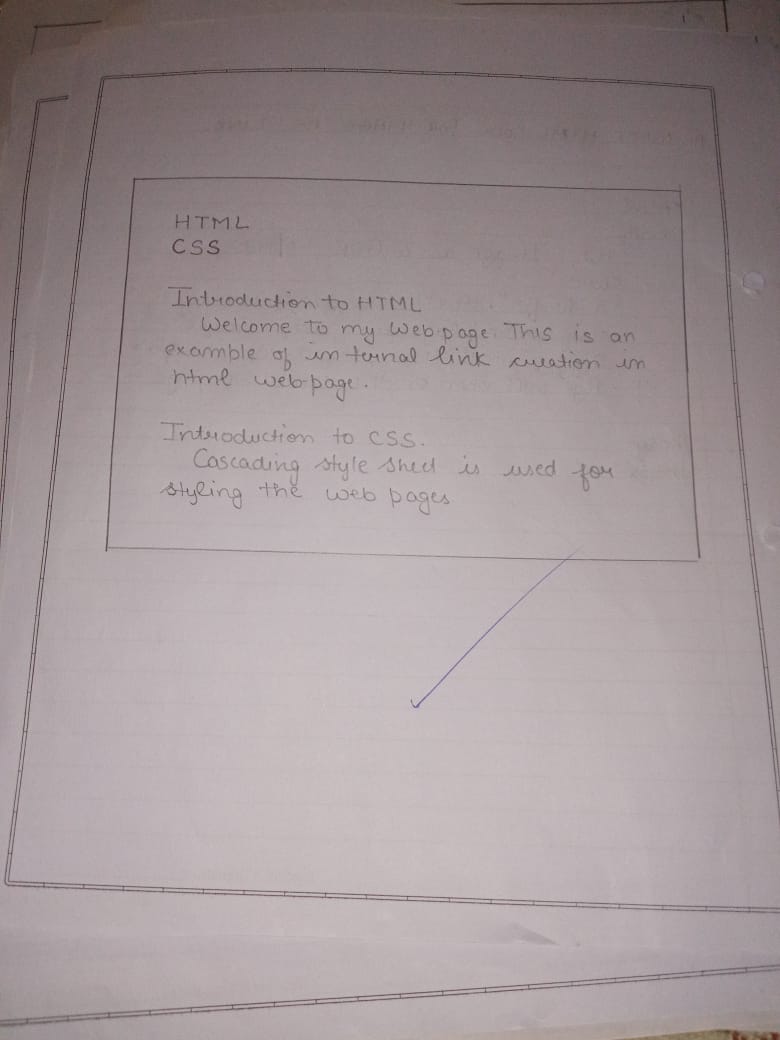 HTML
CSS
Introduction to HTML
Welcome to my Web page. This is an
example of internal link creation in
html web-page.
Introduction to CSS.
Cascading style shed is used for
styling the web pages